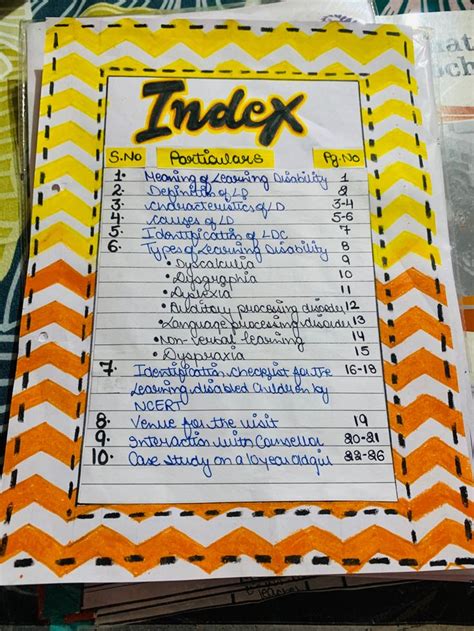 Index
S.No Particulars Pg.No
1. Meaning of Learning Disability 1
2. Definition of LD 2
3. Characteristics of LD 3-4
4. Causes of LD 5-6
5. Identification of LDC 7
6. Types of Learning Disability 8
• Dyscalculia 9
• Dysgraphia 10
• Dyslexia 11
• Auditory processing disorder 12
• Language processing disorder 13
• Non verbal learning 14
• Dyspraxia 15
7. Identification checklist for the 16-18
Learning disabled Children by
NCERT
8. Venue for the visit 19
9. Interaction with Counsellor 20-21
10. Case Study on a 10 year old girl 22-26